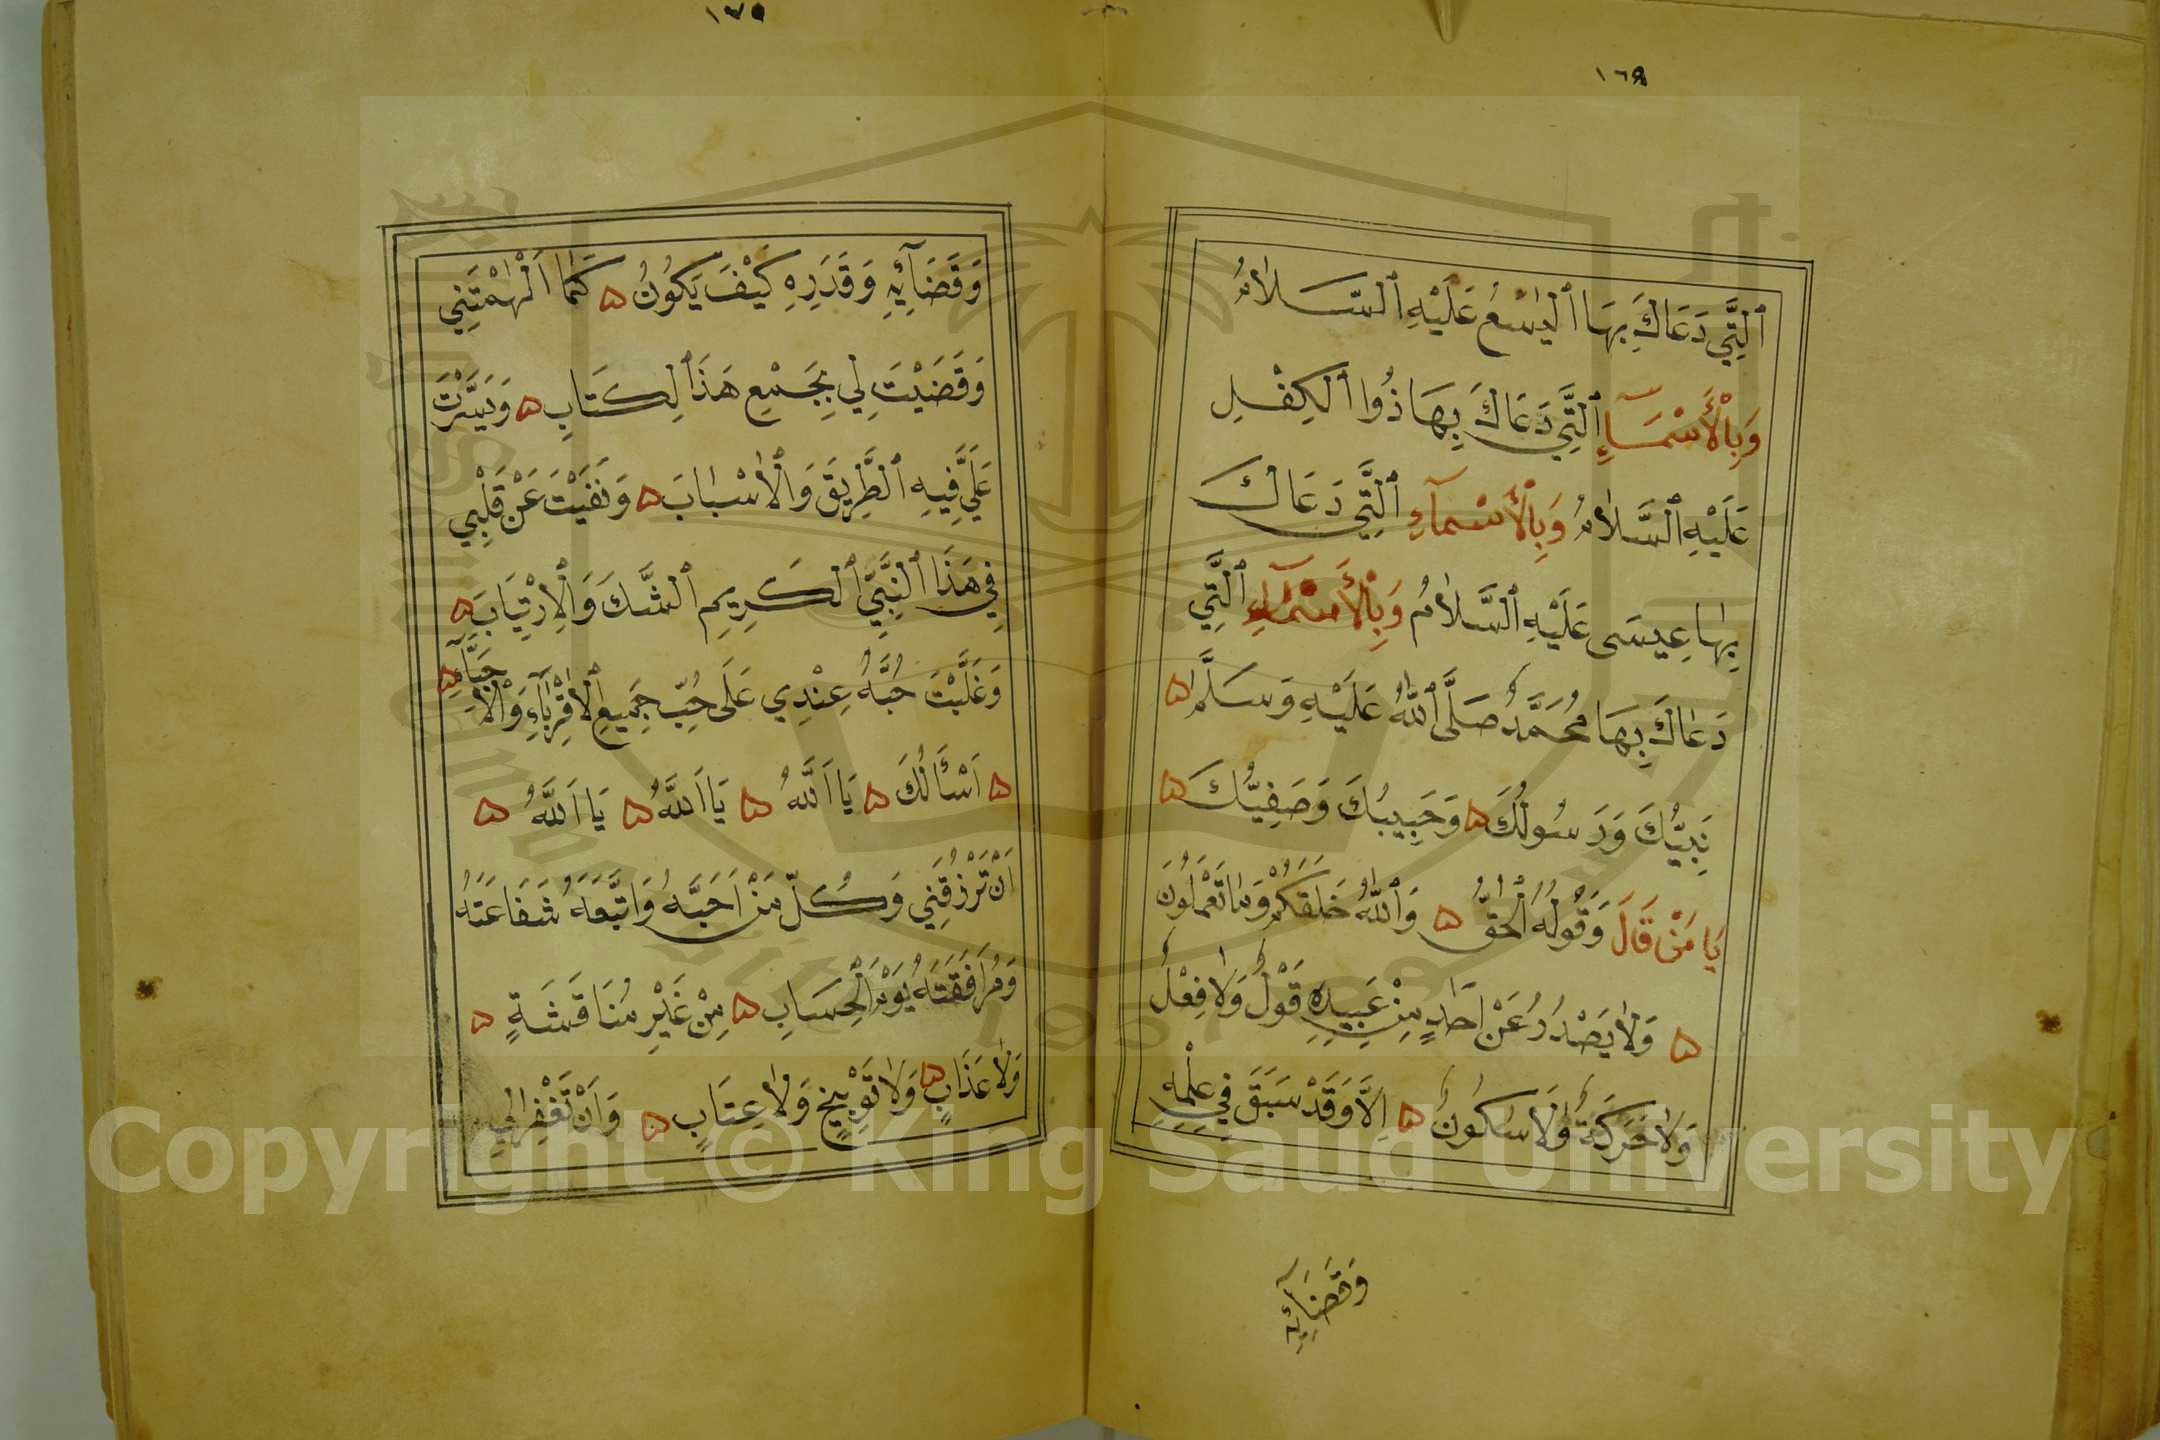 ١٦٩
ٱلَّتِي دَعَاكَ بِهَا ٱلْيَسَعُ عَلَيْهِ ٱلسَّلَامُ
وَبِالْأَسْمَآءِ ٱلَّتِي دَعَاكَ بِهَا ذُوا ٱلْكِفْلِ
عَلَيْهِ ٱلسَّلَامُ وَبِالْأَسْمَآءِ ٱلَّتِي دَعَاكَ
بِهَا عِيسَى عَلَيْهِ ٱلسَّلَامُ وَبِالْأَسْمَآءِ ٱلَّتِي
دَعَاكَ بِهَا مُحَمَّدٌ صَلَّى ٱللَّهُ عَلَيْهِ وَسَلَّمَ
نَبِيُّكَ وَرَسُولُكَ وَحَبِيبُكَ وَصَفِيُّكَ
يَا مَنْ قَالَ وَقَوْلُهُ ٱلْحَقُّ وَٱللَّهُ خَلَقَكُمْ وَمَا تَعْمَلُونَ
وَلَا يَصْدُرُ عَنْ اَحَدٍ مِنْ عَبِيدِهِ قَوْلٌ وَلَا فِعْلٌ
وَلَا حَرَكَةٌ وَلَا سُكُونٌ اِلَّا وَقَدْ سَبَقَ فِي عِلْمِهِ
وَقَضَآئِهِ
١٧٥
وَقَضَآئِهِ وَقَدَرِهِ كَيْفَ يَكُونُ كَمَا اَلْهَمْتَنِي
وَقَضَيْتَ لِي بِجَمِيْعِ هَذَا ٱلْكِتَابِ وَيَسَّرْتَ
عَلَيَّ فِيهِ ٱلطَّرِيقَ وَٱلْاَسْبَابَ وَنَفَيْتَ عَنْ قَلْبِي
فِي هَذَا ٱلنَّبِيِّ ٱلْكَرِيمِ ٱلشَّكَ وَٱلْاِرْتِيَابَ
وَغَلَّبْتَ حُبَّهُ عِنْدِي عَلَى حُبِّ جَمِيعِ ٱلْاَقْرِبَآءِ وَٱلْاَحِبَّآءِ
اَسْأَلُكَ يَا اَللَّهُ يَا اَللَّهُ يَا اَللَّهُ
اَنْ تَرْزُقَنِي وَكُلَّ مَنْ اَحَبَّهُ وَاتَّبَعَهُ شَفَاعَتَهُ
وَمُرَافَقَتَهُ يَوْمَ ٱلْحِسَابِ مِنْ غَيْرِ مُنَاقَشَةٍ
وَلَا عَذَابٍ وَلَا تَوْبِيْخٍ وَلَا عِتَابٍ وَاَنْ تَغْفِرَ لِي
Copyright © King Saud University
1957